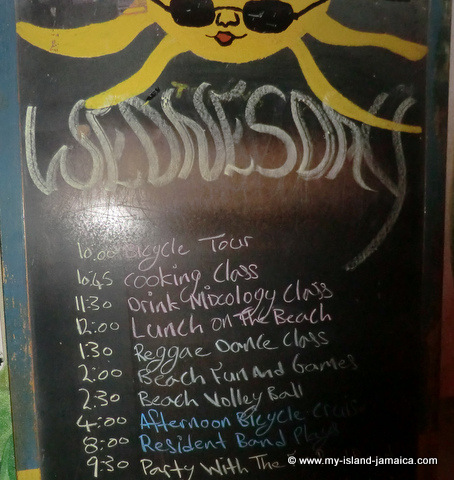 WEDNESDAY
10:00 Bicycle Tour
10:45 Cooking Class
11:30 Drink Mixology Class
12:00 Lunch on The Beach
1:30 Reggae Dance Class
2:00 Beach Fun And Games
2:30 Beach Volley Ball
4:00 Afternoon Bicycle Cruise
8:00 Resident Band Plays
9:30 Party With The
© www.my-island-jamaica.com